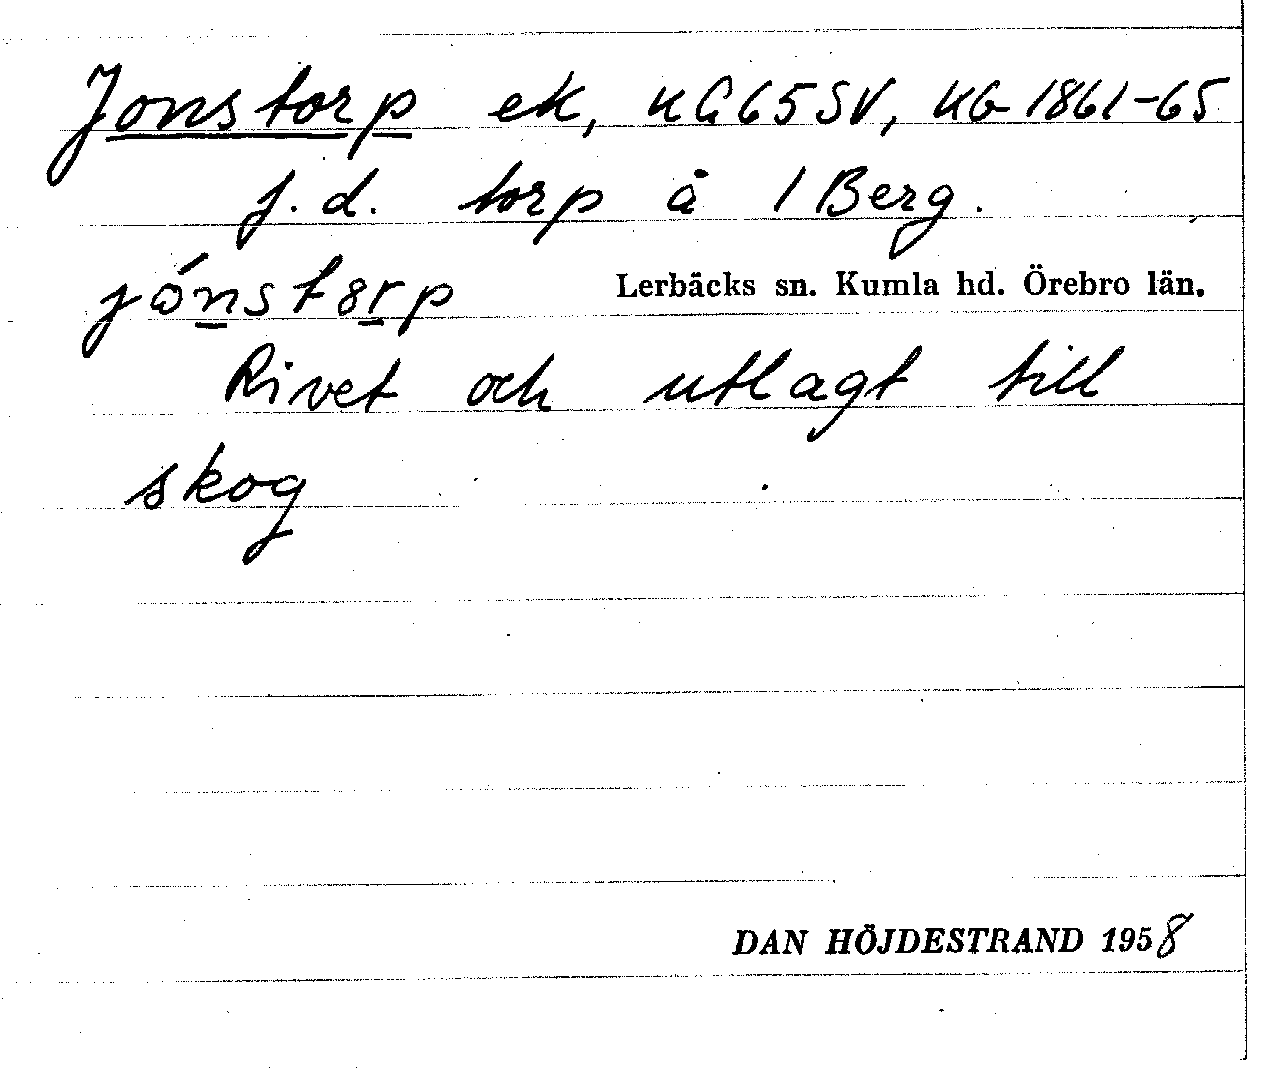 Jonstorp ek, UG65SV, UG 1861-65
f.d. torp å 1 Berg.
jónst8rp Lerbäcks sn. Kumla hd. Örebro län.
Rivet och utlagt till
skog
DAN HÖJDESTRAND 1958